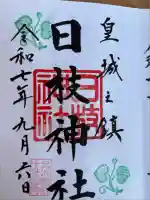 皇城之鎮
日枝神社
令和七年九月六日